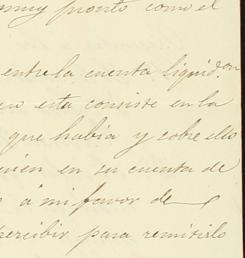 muy pronto como el
entre la cuenta liquid.on
en esta consiste en la
que habia y cobre dlls
en su cuenta de
à mi favor de
percibir para remitirlo